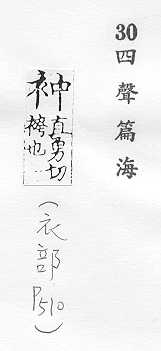 30四聲篇海
衶直勇切
袴也
(衣部P510)